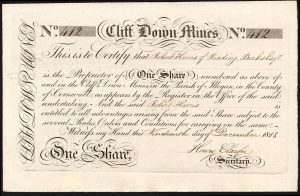 No. 412 Cliff Down Mines No. 412
This is to Certify that Robert Hieras of Reading Berks Esqr.
is the Proprietor of One Share numbered as above of
and in the Cliff Down Mines in the Parish of Illogan, in the County
of Cornwall, as appears by the Register in the Office of the said
undertaking. And the said Robert is
entitled to all advantages arising from the said Share subject to the
several Rules Orders and Conditions for carrying on the same
Witness my Hand this day of December 18
One Share. Henry
Secretary.